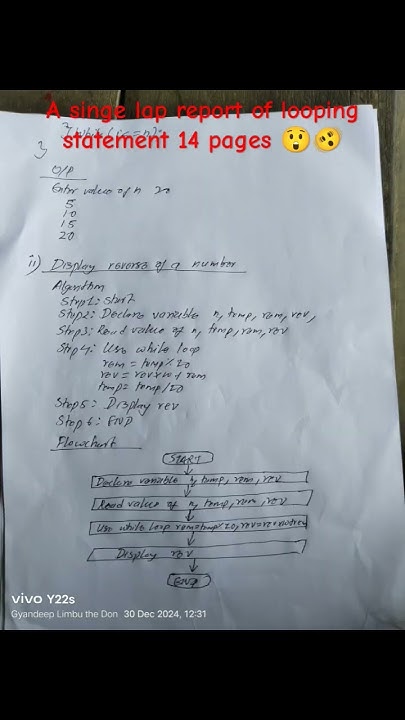 A singe lap report of looping
statement 14 pages 😲🫨
} while (i<=n);
}
O/P
Enter value of n 20
5
10
15
20
ii) Display reverse of a number
Algorithm
Step1: Start
Step2: Declare variable n, temp, rem, rev,
Step3: Read value of n, temp, rem, rev
Step4: Use while loop
rem = temp%20
rev = rev*20 + rem
temp = temp/20
Step5: Display rev
Step 6: END
Flowchart
START
Declare variable n, temp, rem, rev
Read value of n, temp, rem, rev
Use while loop rem=temp%20, rev=rev
Display rev
END
vivo Y22s
Gyandeep Limbu the Don 30 Dec 2024, 12:31